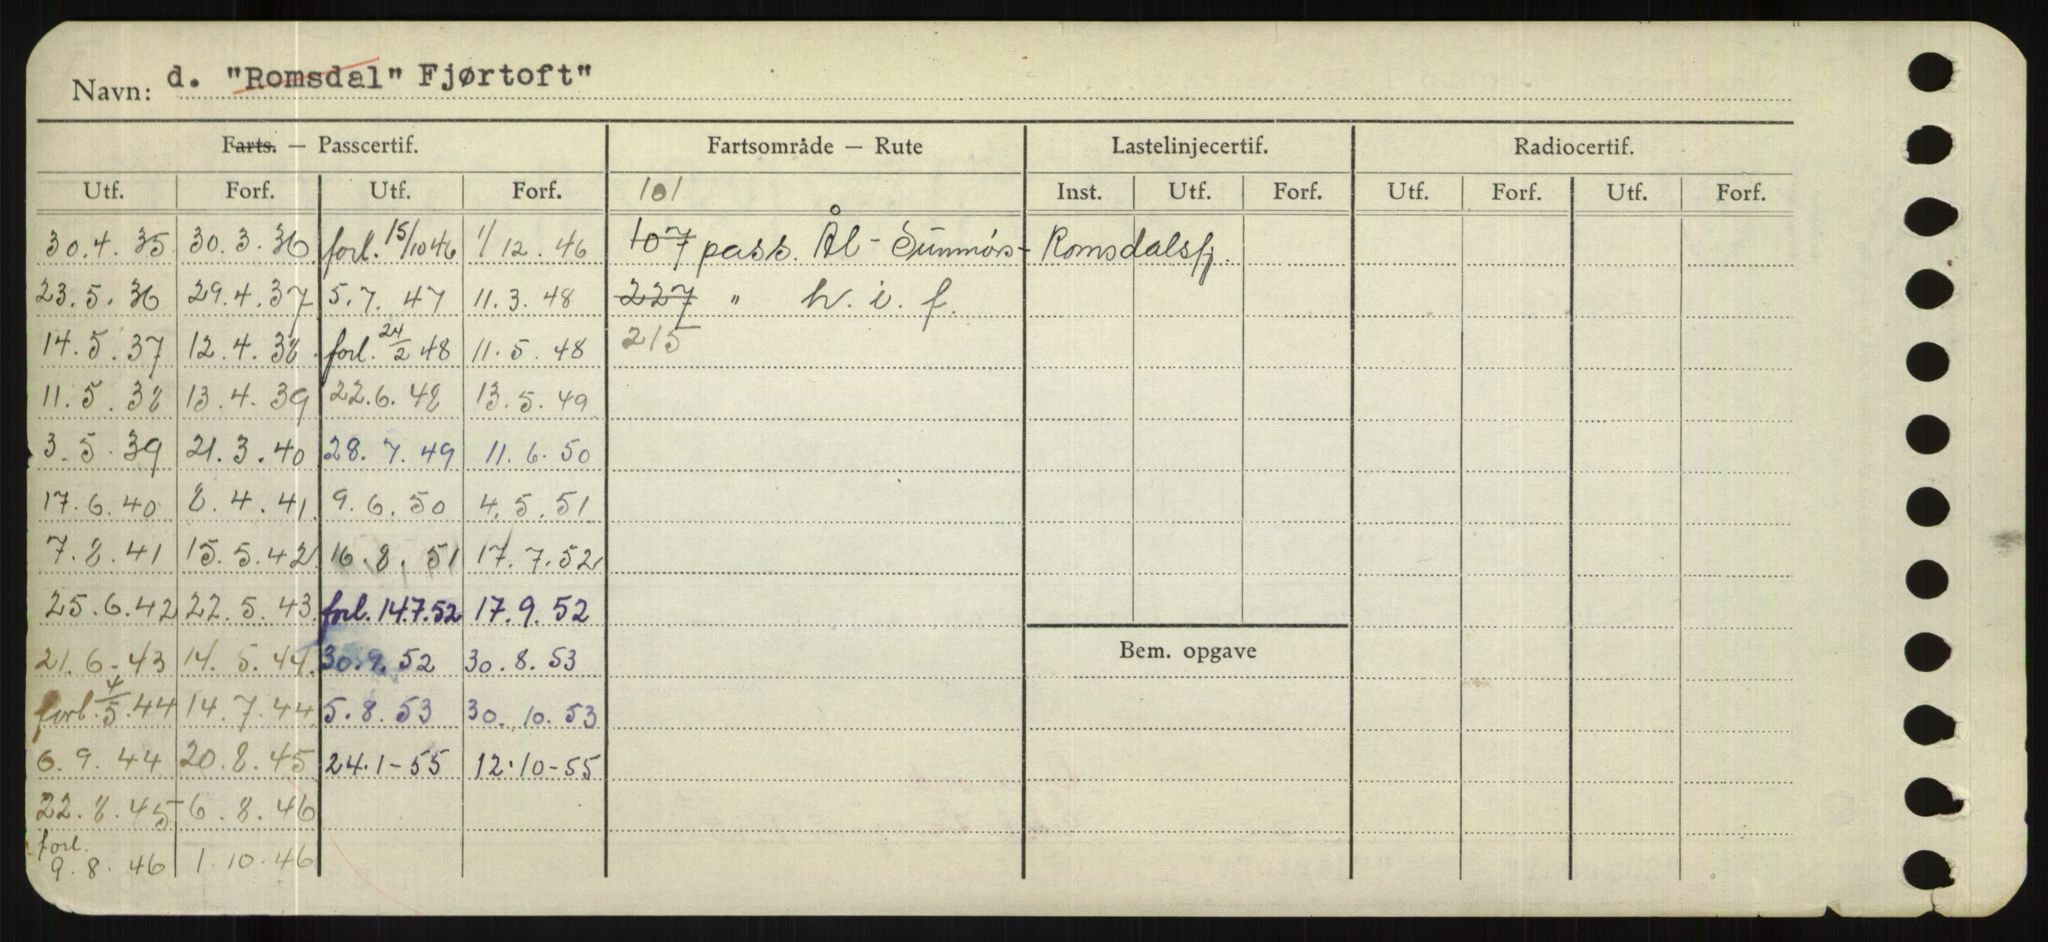 Navn: d. "Romsdal" Fjørtoft"
Farts. — Passcertif. Fartsområde — Rute Lastelinjecertif. Radiocertif.
Utf. Forf. Utf. Forf. 101 Inst. Utf. Forf. Utf. Forf. Utf. Forf.
30.4.35 30.3.36 forl. 15/10 46 1/12.46 107 pass. Ål - Sunnmørs - Romsdalsfj.
23.5.36 29.4.37 5.7.47 11.3.48 227 " h.i.f.
14.5.37 12.4.38. forl. 24/2 48 11.5.48 215
11.5.38 13.4.39 22.6.48 13.5.49
3.5.39 21.3.40 28.7.49 11.6.50
17.6.40 8.4.41. 9.6.50 4.5.51
7.8.41 15.5.42 16.8.51 17.7.52
25.6.42 22.5.43. forl. 14.7.52 17.9.52
21.6-43 14.5.44. 30.9.52 30.8.53 Bem. opgave
forl. 4/5.44 14.7.44 5.8.53 30.10.53
6.9.44 20.8.45 24.1-55 12.10-55
22.8.45 6.8.46
forl.
9.8.46 1.10.46